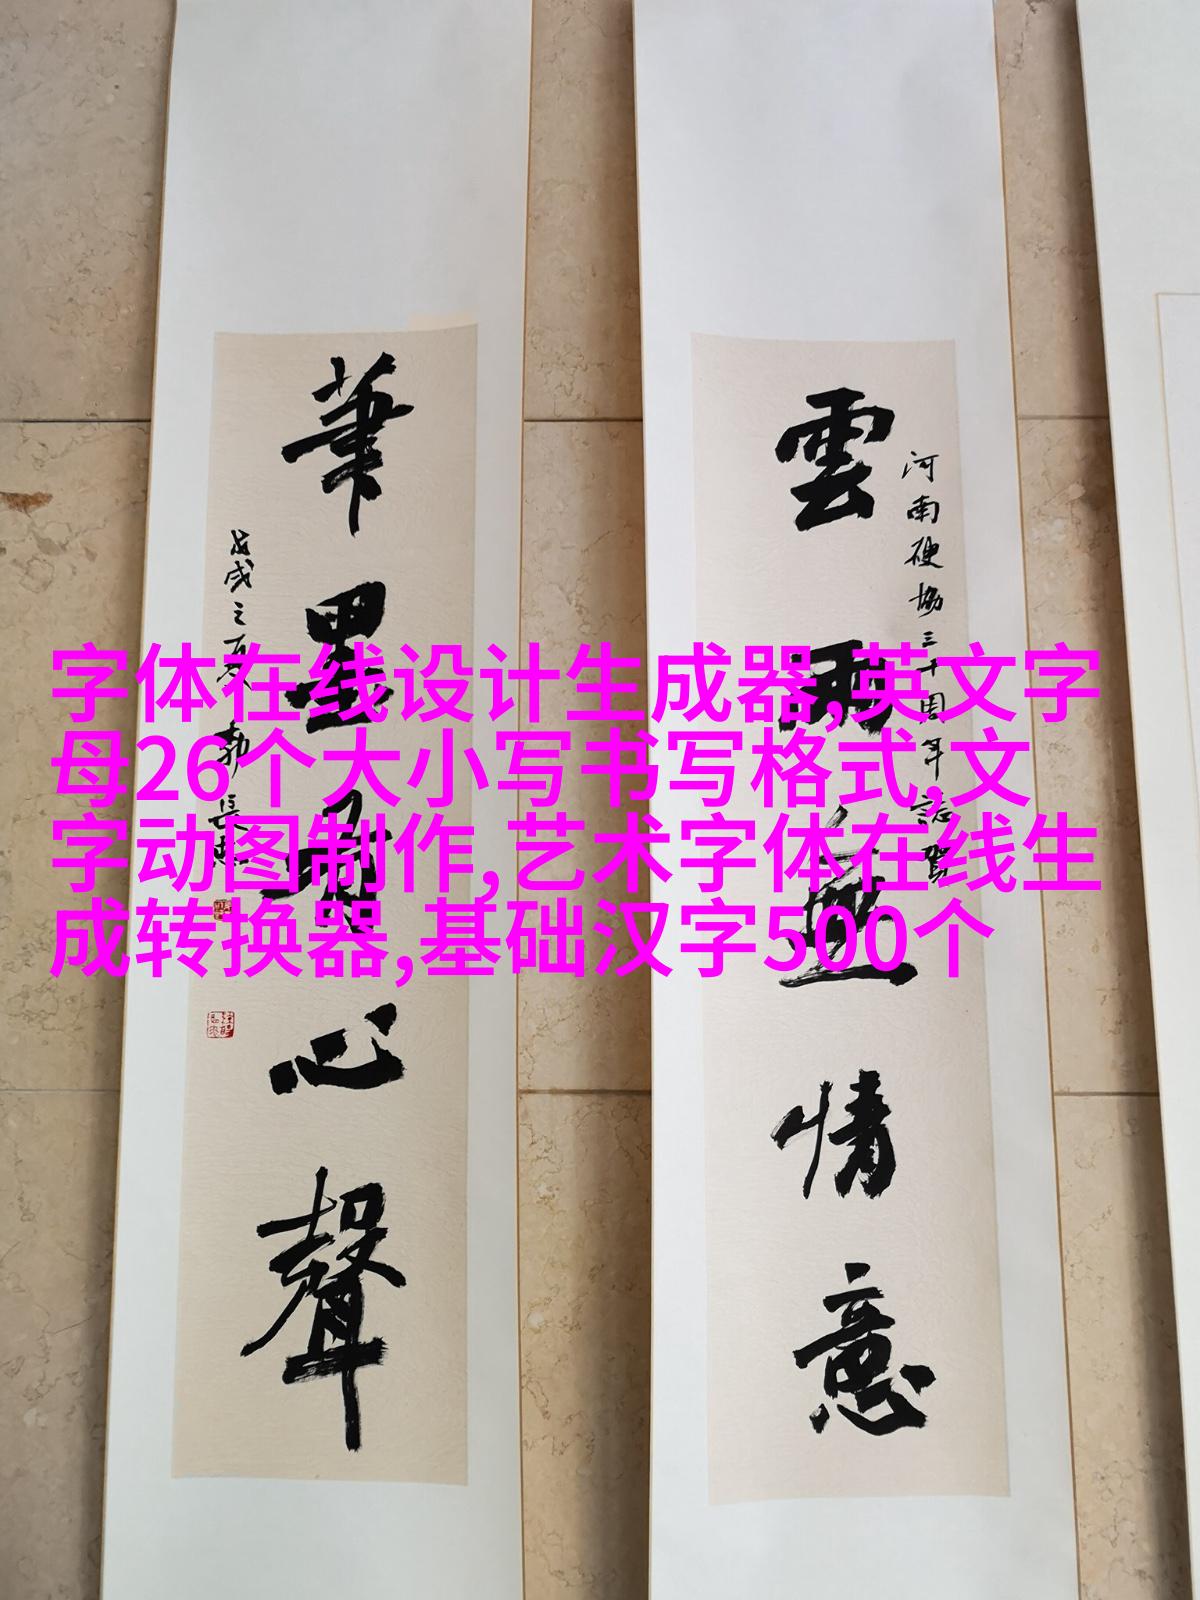 字体在线设计生成器,英文字
母26个大小写书写格式,文
字动图制作,艺术字体在线生
成转换器,基础汉字500个
河南硬協三十周年誌賀
雲雨情意
筆墨心聲
戊戌之夏